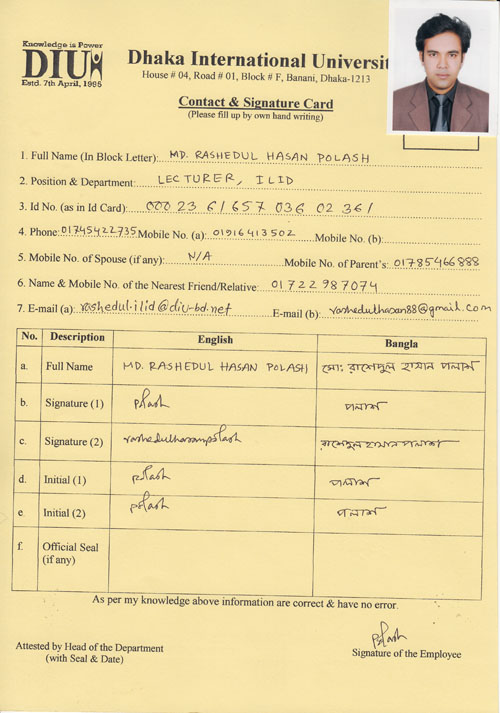 Knowledge is Power
DIU
Estd. 7th April, 1995
Dhaka International Universit
House # 04, Road # 01, Block # F, Banani, Dhaka-1213
Contact & Signature Card
(Please fill up by own hand writing)
1. Full Name (In Block Letter): MD. RASHEDUL HASAN POLASH
2. Position & Department: LECTURER, ILID
3. Id No. (as in Id Card): 000 23 61 657 036 02 361
4. Phone: 01745422735 Mobile No. (a): 01916413502 Mobile No. (b):
5. Mobile No. of Spouse (if any): N/A Mobile No. of Parent's: 01785466888
6. Name & Mobile No. of the Nearest Friend/Relative: 01722987074
7. E-mail (a): rashedul.ilid@diu-bd.net E-mail (b): rashedulhasan88@gmail.com
No. Description English Bangla
a. Full Name MD. RASHEDUL HASAN POLASH মো: রাশেদুল হাসান পলাশ
b. Signature (1) polash পলাশ
c. Signature (2) rashedulhasanpolash রাশেদুল হাসান পলাশ
d. Initial (1) polash পলাশ
e. Initial (2) polash পলাশ
f. Official Seal
(if any)
As per my knowledge above information are correct & have no error.
polash
Attested by Head of the Department Signature of the Employee
(with Seal & Date)